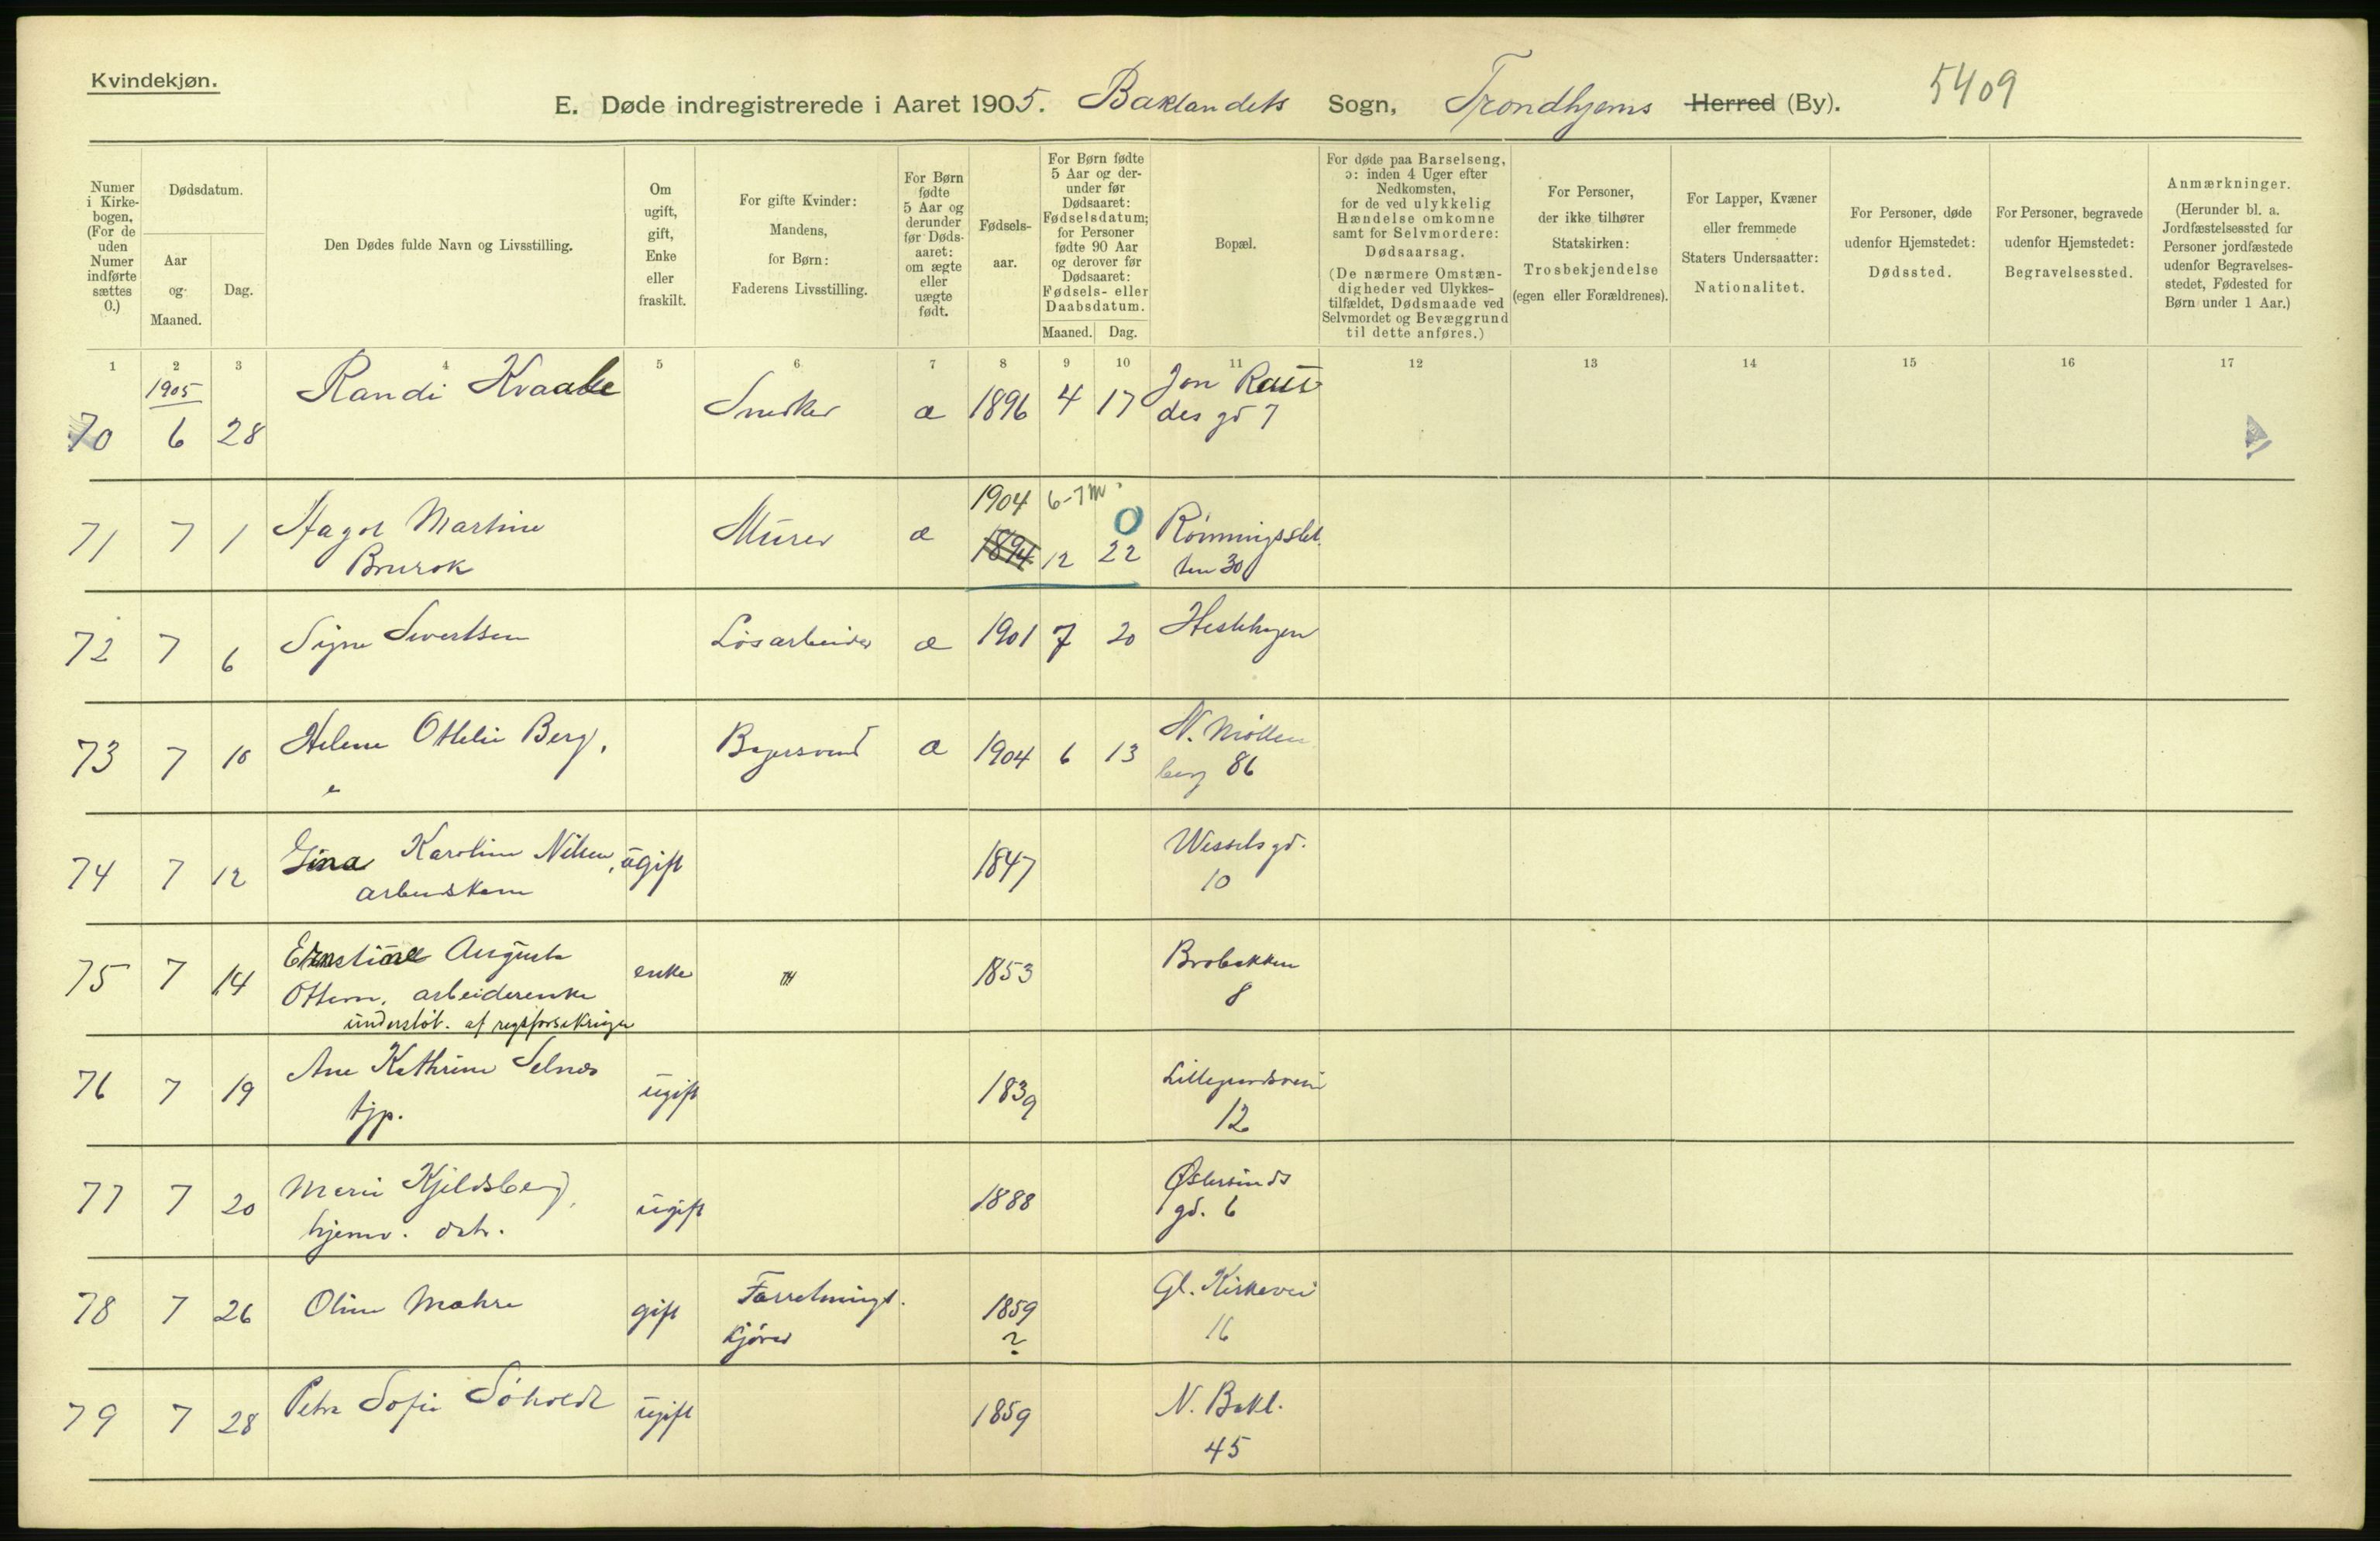 Kvindekjøn.
E. Døde indregistrerede i Aaret 1905. Baklandets Sogn, Trondhjems Herred (By). 5409
Numer i Kirkebogen. (For de uden Numer indførte sættes 0.)
Dødsdatum.
Aar og Maaned.
Dag.
Den Dødes fulde Navn og Livsstilling.
Om ugift, gift, Enke eller fraskilt.
For gifte Kvinder: Mandens, for Børn: Faderens Livsstilling.
For Børn fødte 5 Aar og derunder før Dødsaaret: om ægte eller uægte født.
Fødselsaar.
For Børn fødte 5 Aar og derunder før Dødsaaret: Fødselsdatum; for Personer fødte 90 Aar og derover før Dødsaaret: Fødsels- eller Daabsdatum.
Maaned. Dag.
Bopæl.
For døde paa Barselseng, ɔ: inden 4 Uger efter Nedkomsten, for de ved ulykkelig Hændelse omkomne samt for Selvmordere: Dødsaarsag. (De nærmere Omstændigheder ved Ulykkestilfældet, Dødsmaade ved Selvmordet og Bevæggrund til dette anføres.)
For Personer, der ikke tilhører Statskirken: Trosbekjendelse (egen eller Forældrenes).
For Lapper, Kvæner eller fremmede Staters Undersaatter: Nationalitet.
For Personer, døde udenfor Hjemstedet: Dødssted.
For Personer, begravede udenfor Hjemstedet: Begravelsessted.
Anmærkninger. (Herunder bl. a. Jordfæstelsessted for Personer jordfæstede udenfor Begravelsesstedet, Fødested for Børn under 1 Aar.)
1 2 3 4 5 6 7 8 9 10 11 12 13 14 15 16 17
1905
70 6 28 Randi Kvaake Snedker æ 1896 4 17 Jon Raus
des gd 7
1904 6-7 m
71 7 1 Hagol Martine Murer æ 1894 12 22 0 Rønningsslet
Brurok ten 30
72 7 6 Signe Sivertsen Løsarbeider æ 1901 7 20 Hestehagen
73 7 10 Helene Ottelie Berg, Bagersvend æ 1904 6 13 N. Møllen
berg 86
74 7 12 Gina Karoline Nilsen, ugift 1847 Wessels gd.
arbeidskone 10
75 7 14 Ernstine Augusta enke 1853 Brobakken
Ottem, arbeiderenke 8
understøt. af
76 7 19 Ane Kathrine Selnes ugift 1839 Lillegaardsvei
tjp. 12
77 7 20 Marie Kjeldsberg, ugift 1888 Østersunds
hjemv. datr. gd. 6
78 7 26 Oline Mæhre gift Forretningst. 1859 Gl. Kirkevei
kjører ? 16
79 7 28 Petra Sofie Søholdt ugift 1859 N. Bakl.
45